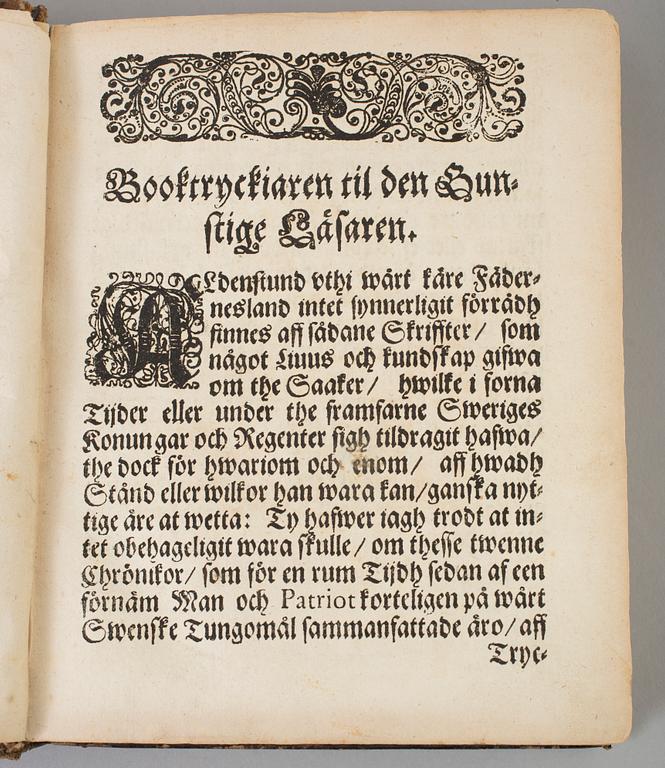 Booktryckiaren til den Gun-
stige Läsaren.
ALdenstund vthi wårt käre Fäder-
nesland intet synnerligit förrådh
finnes aff sådane Skriffter / som
något Liuus och kundskap gifwa
om the Saaker / hwilke i forna
Tijder eller under the framfarne Sweriges
Konungar och Regenter sigh tildragit hafwa /
the dock för hwariom och enom / aff hwadh
Stånd eller wilkor han wara kan / ganska nyt-
tige äre at wetta: Ty hafwer iagh trodt at in-
tet obehageligit wara skulle / om thesse twenne
Chrönikor / som för en rum Tijdh sedan af een
förnäm Man och Patriot korteligen på wårt
Swenske Tungomål sammanfattade äro / aff
Tryc-